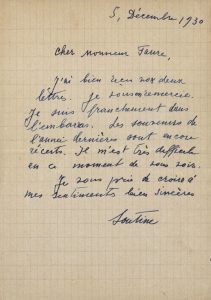 5, Décembre 1930
Cher Monsieur Faure,
J'ai bien reçu vos deux
lettres. Je vous remercie.
Je suis franchement dans
l'embaras. Les souvenirs de
l'année dernière sont encore
récents. Il m'est très difficile
en ce moment de vous voir.
Je vous prie de croire à
mes sentiments bien sincères
Soutine